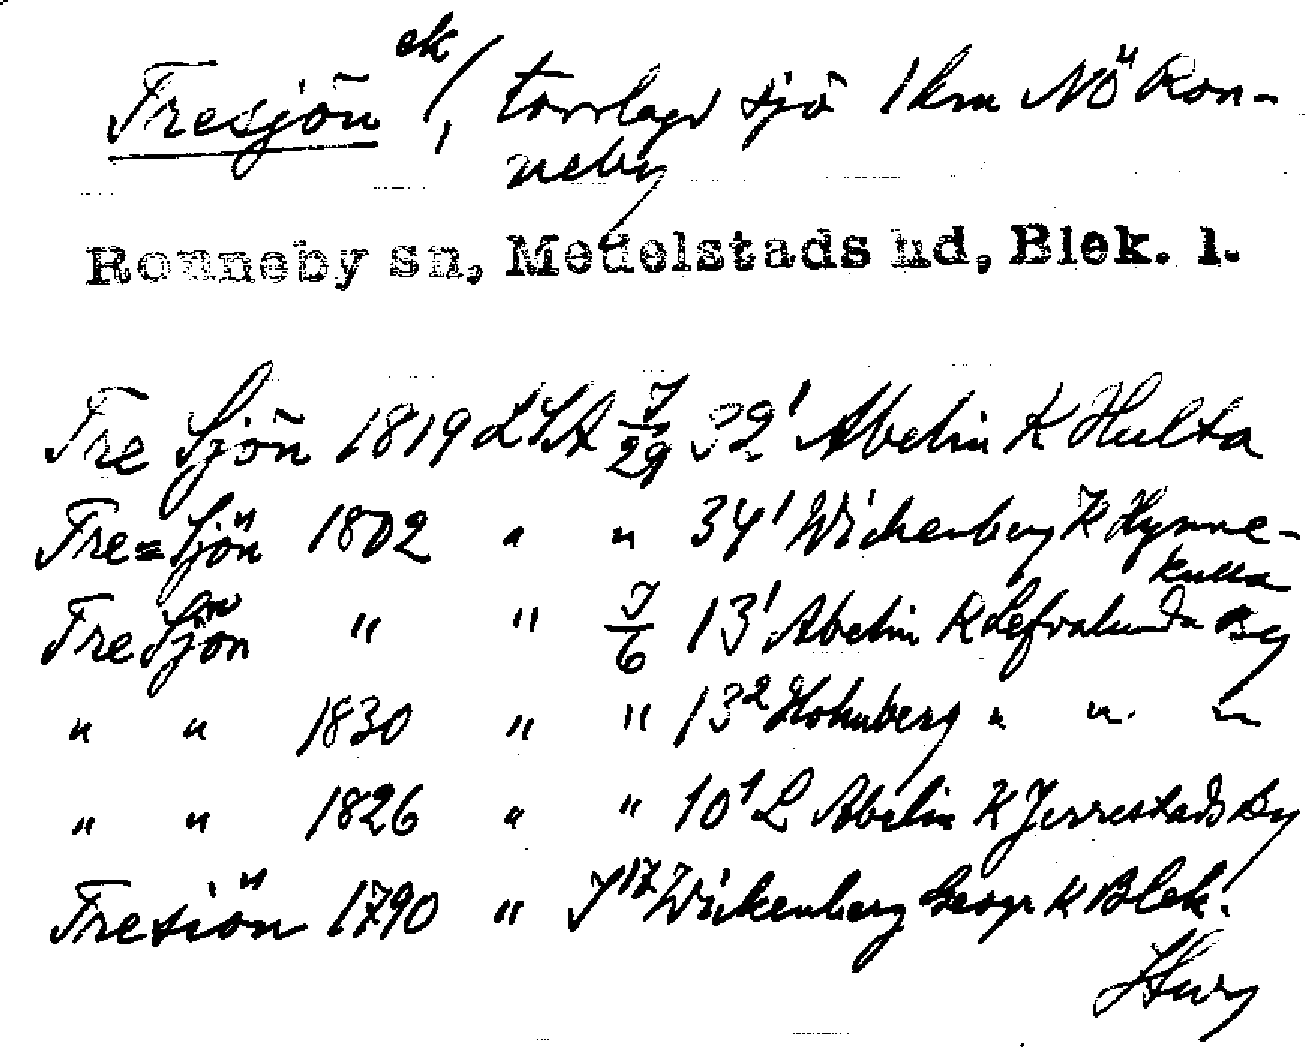 Fresjön ek/, torrlagd sjö 1 km NÖ Ron-
neby
Ronneby sn, Medelstads hd, Blek. l.
Fre Sjön 1819 LSA J/29 32¹ Abelin K Hulta
Fre=Sjön 1802 " " 34¹ Wickenberg K Hynne-
kulla
Fre Sjön " " J/6 13¹ Abelin K Lefvalunda By
" " 1830 " " 13² Holmberg " " "
" " 1826 " " 10¹ L Abelin K Jerrestads By
Fresiön 1790 " J 17 Wickenberg Geogr K Blek.